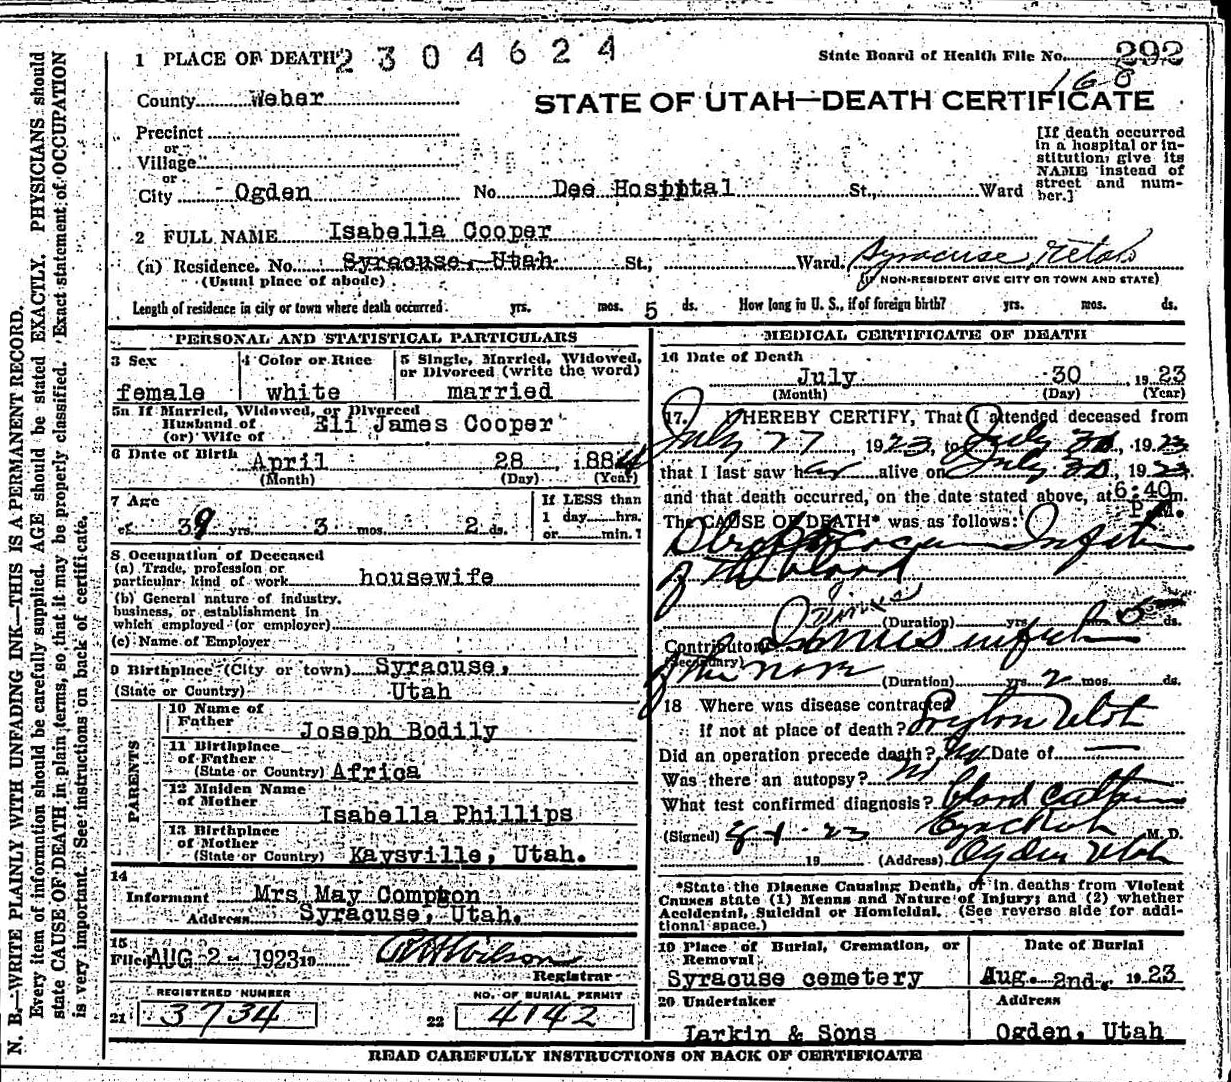 1 PLACE OF DEATH 2304624
State Board of Health File No. 292
168
County Weber
STATE OF UTAH—DEATH CERTIFICATE
Precinct
or
Village
or
City Ogden No. Dee Hospital St., Ward
[If death occurred in a hospital or in-
stitution, give its
NAME instead of
street and num-
ber.]
2 FULL NAME Isabella Cooper
(a) Residence. No. Syracuse, Utah St., Ward. Syracuse, Utah
(Usual place of abode) (If NON-RESIDENT GIVE CITY OR TOWN AND STATE)
Length of residence in city or town where death occurred yrs. mos. 5 ds. How long in U. S., if of foreign birth? yrs. mos. ds.
PERSONAL AND STATISTICAL PARTICULARS
3 Sex
female
4 Color or Race
white
5 Single, Married, Widowed,
or Divorced (write the word)
married
5a If Married, Widowed, or Divorced
Husband of
(or) Wife of Eli James Cooper
6 Date of Birth April 28, 1884
(Month) (Day) (Year)
7 Age
of 39 yrs. 3 mos. 2 ds.
If LESS than
1 day hrs.
or min.?
8 Occupation of Deceased
(a) Trade, profession or
particular kind of work housewife
(b) General nature of industry,
business, or establishment in
which employed (or employer)
(c) Name of Employer
9 Birthplace (City or town) Syracuse,
(State or Country) Utah
PARENTS
10 Name of
Father Joseph Bodily
11 Birthplace
of Father
(State or Country) Africa
12 Maiden Name
of Mother Isabella Phillips
13 Birthplace
of Mother
(State or Country) Kaysville, Utah.
14
Informant Mrs May Compton
Address Syracuse, Utah.
15
Filed AUG 2 - 1923 19 Wilson
Registrar
REGISTERED NUMBER
21 3734
NO. OF BURIAL PERMIT
22 4142
MEDICAL CERTIFICATE OF DEATH
16 Date of Death
July 30, 1923
(Month) (Day) (Year)
17. I HEREBY CERTIFY, That I attended deceased from
July 27, 1923, to July 30, 1923
that I last saw her alive on July 30, 1923
and that death occurred, on the date stated above, at 6:40 m.
P.M.
The CAUSE OF DEATH* was as follows:
Infection
of the blood
(Duration) yrs. mos. 5 ds.
Contributory infection
(Secondary)
of the nose (Duration) yrs. 2 mos. ds.
18 Where was disease contracted
if not at place of death? Utah
Did an operation precede death? No Date of —
Was there an autopsy? No
What test confirmed diagnosis? blood culture
(Signed) 8-1-23 M. D.
19 (Address) Ogden Utah
*State the Disease Causing Death, or in deaths from Violent
Causes state (1) Means and Nature of Injury; and (2) whether
Accidental, Suicidal or Homicidal. (See reverse side for addi-
tional space.)
19 Place of Burial, Cremation, or
Removal
Syracuse cemetery
Date of Burial
Aug. 2nd, 1923
20 Undertaker
Larkin & Sons
Address
Ogden, Utah
READ CAREFULLY INSTRUCTIONS ON BACK OF CERTIFICATE
N. B.—WRITE PLAINLY WITH UNFADING INK—THIS IS A PERMANENT RECORD.
Every item of information should be carefully supplied. AGE should be stated EXACTLY. PHYSICIANS should
state CAUSE OF DEATH in plain terms, so that it may be properly classified. Exact statement of OCCUPATION
is very important. See instructions on back of certificate.